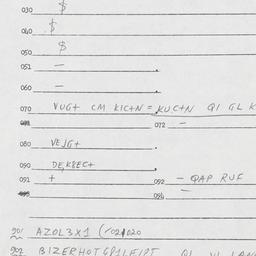 030 $
040 $
050 $
051 —
060 —
070 VUG+ CM KIC+N = KUC+N QI GL K
072 —
080 VEJG+
090 DEKBEC+
091 + 092 — QAP RUF
096 —
901 AZOL3X1 (102/020
902 BIZERHOT6P1LFIPT QL VI LANG